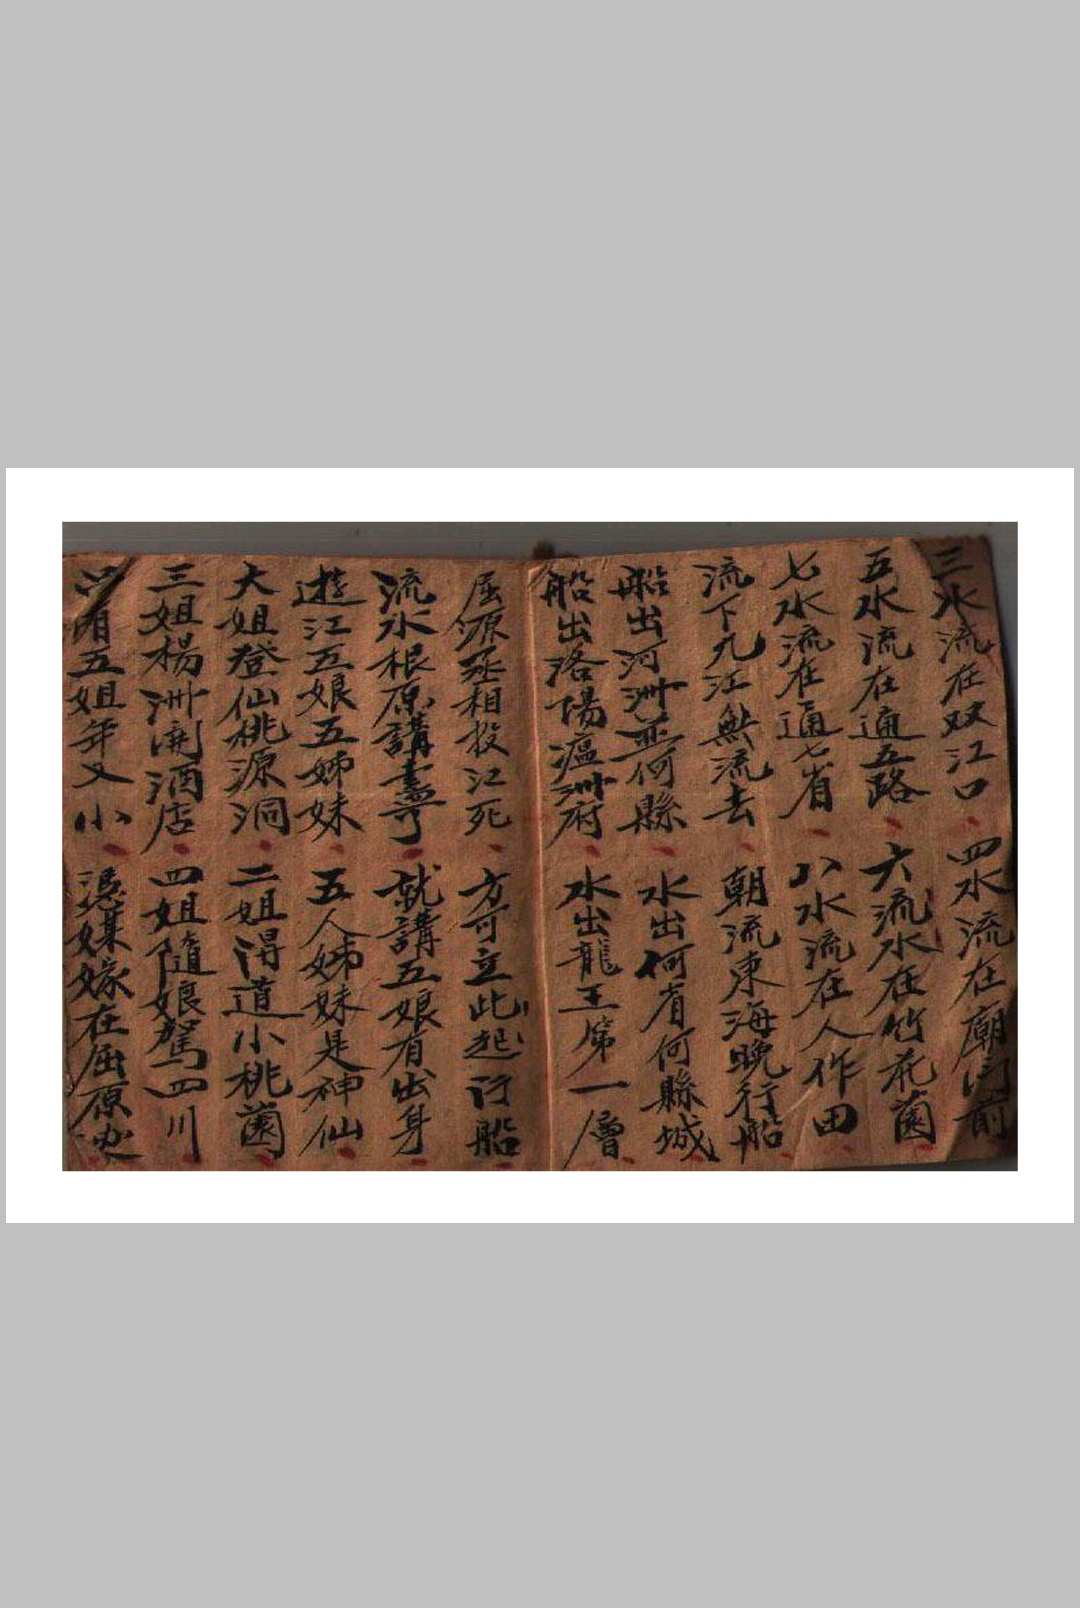 三水流在双江口 四水流在廟門前
五水流在通五路 六流水在竹花園
七水流在通七省 八水流在人作田
流下九江無流去 朝流東海晚行船
船出河洲並何縣 水出何省何縣城
船出洛陽瘟洲府 水出龍王第一層
屈源丞相投江死 方可立此起行船
流水根原講盡了 就講五娘有出身
遊江五娘五姊妹 五人姊妹是神仙
大姐登仙桃源洞 二姐得道小桃園
三姐楊洲開酒店 四姐隨娘駕四川
只有五姐年又小 憑媒嫁在屈原